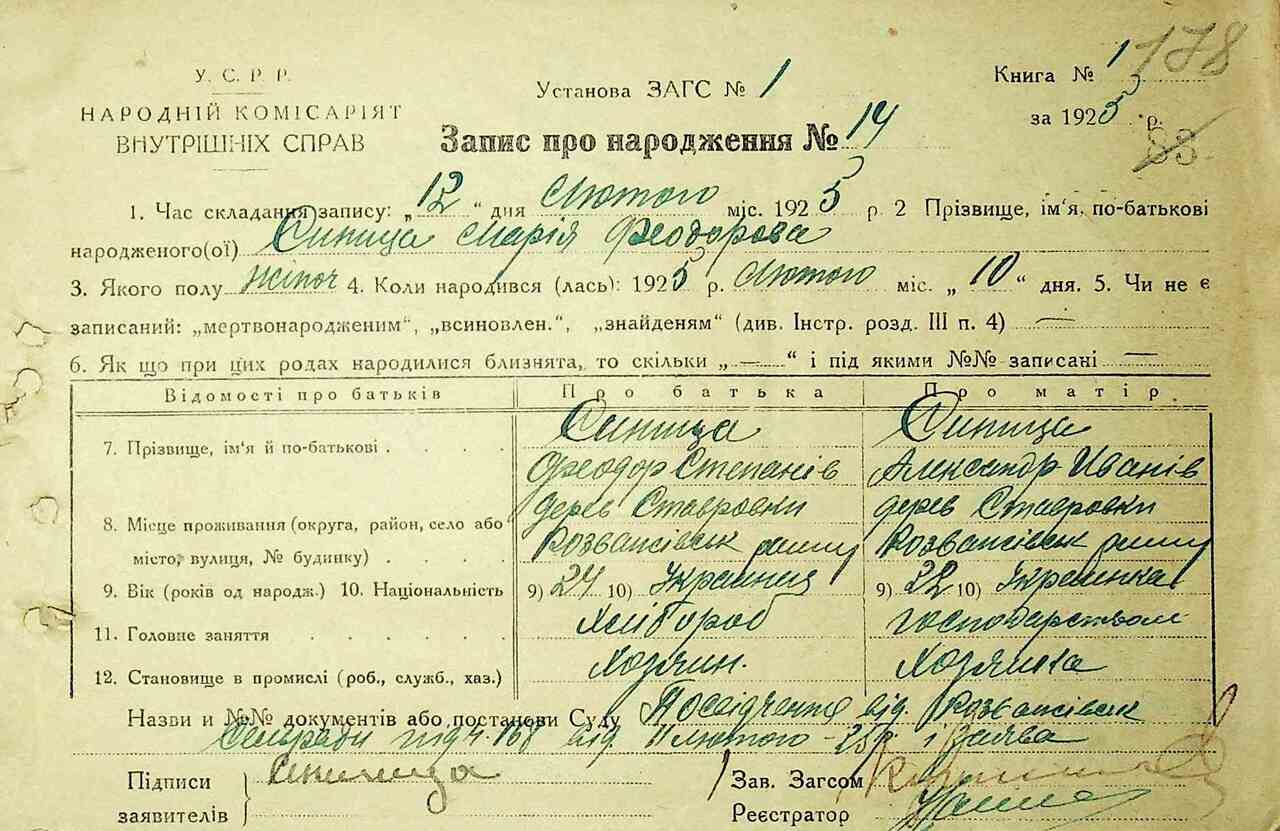 У. С. Р. Р.
НАРОДНІЙ КОМІСАРІЯТ
ВНУТРІШНІХ СПРАВ
Установа ЗАГС № 1
Книга № 1 178
за 1925 р.
83
Запис про народження № 14
1. Час складання запису: „12“ дня Лютого міс. 1925 р. 2 Прізвище, ім'я, по-батькові
народженого(ої) Синица Марія Феодорова
3. Якого полу жіноч 4. Коли народився (лась): 1925 р. Лютого міс. „10“ дня. 5. Чи не є
записаний: „мертвонародженим“, „всиновлен.“, „знайденям“ (див. Інстр. розд. III п. 4) —
6. Як що при цих родах народилися близнята, то скільки „—“ і під якими №№ записані —
Відомості про батьків Про батька Про матір
7. Прізвище, ім'я й по-батькові . . . . Синица Синица
Феодор Степанів Александр Иванів
8. Місце проживання (округа, район, село або дерев Ставровки дерев Ставровки
місто, вулиця, № будинку) . . . .
9. Вік (років од народж.) 10. Національність 9) 24 10) Украинец 9) 22 10) Украинка
11. Головне заняття . . . . . Хлібороб господарством
12. Становище в промислі (роб., служб., хаз.) Хозяин. Хозяйка
Назви и №№ документів або постанови Суду Посвідчення від
Сельради під ч. 168 від 11 лютого - 25 р. і Заява
Підписи Синица Зав. Загсом
заявителів Реєстратор